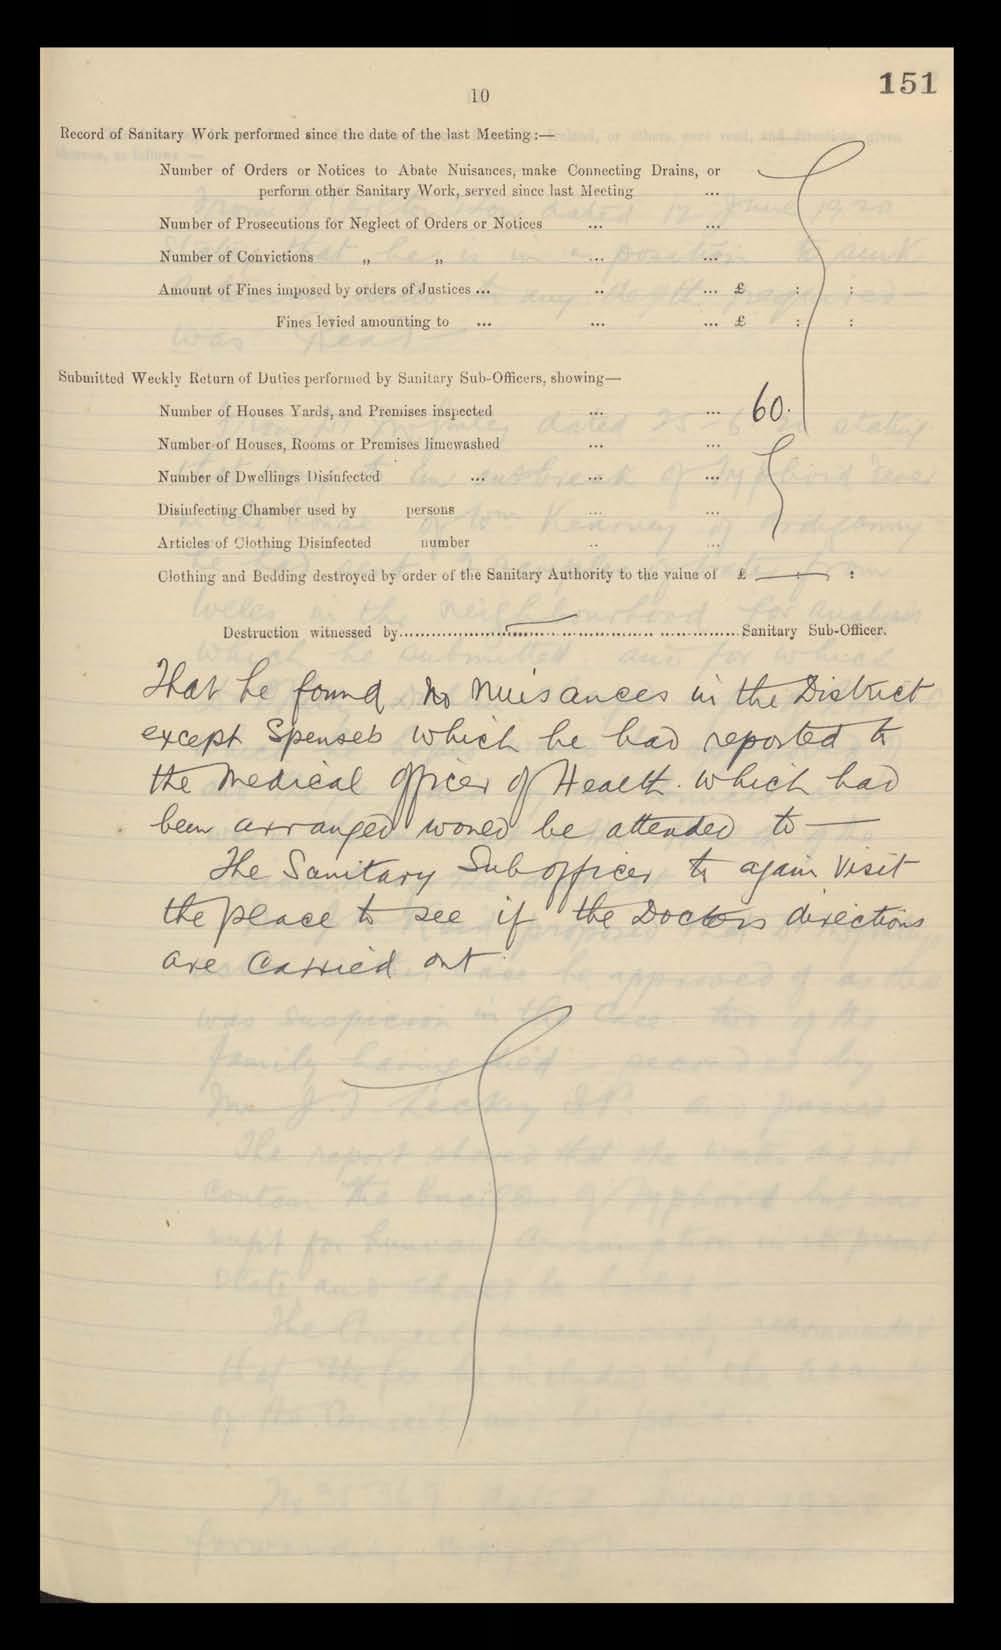 151
10
Record of Sanitary Work performed since the date of the last Meeting :—
Number of Orders or Notices to Abate Nuisances, make Connecting Drains, or
perform other Sanitary Work, served since last Meeting ...
Number of Prosecutions for Neglect of Orders or Notices ... ...
Number of Convictions „ „ ... ...
Amount of Fines imposed by orders of Justices ... .. ... £ : :
Fines levied amounting to ... ... ... £ : :
Submitted Weekly Return of Duties performed by Sanitary Sub-Officers, showing—
Number of Houses Yards, and Premises inspected ... ... 60.
Number of Houses, Rooms or Premises limewashed ... ...
Number of Dwellings Disinfected ... ... ...
Disinfecting Chamber used by persons ... ...
Articles of Clothing Disinfected number .. ...
Clothing and Bedding destroyed by order of the Sanitary Authority to the value of £ : :
Destruction witnessed by........................................Sanitary Sub-Officer.
That he found no nuisances in the District
except Spenses which he had reported to
the Medical Officer of Health. which had
been arranged would be attended to —
The Sanitary Sub officer to again visit
the place to see if the Doctors directions
are carried out